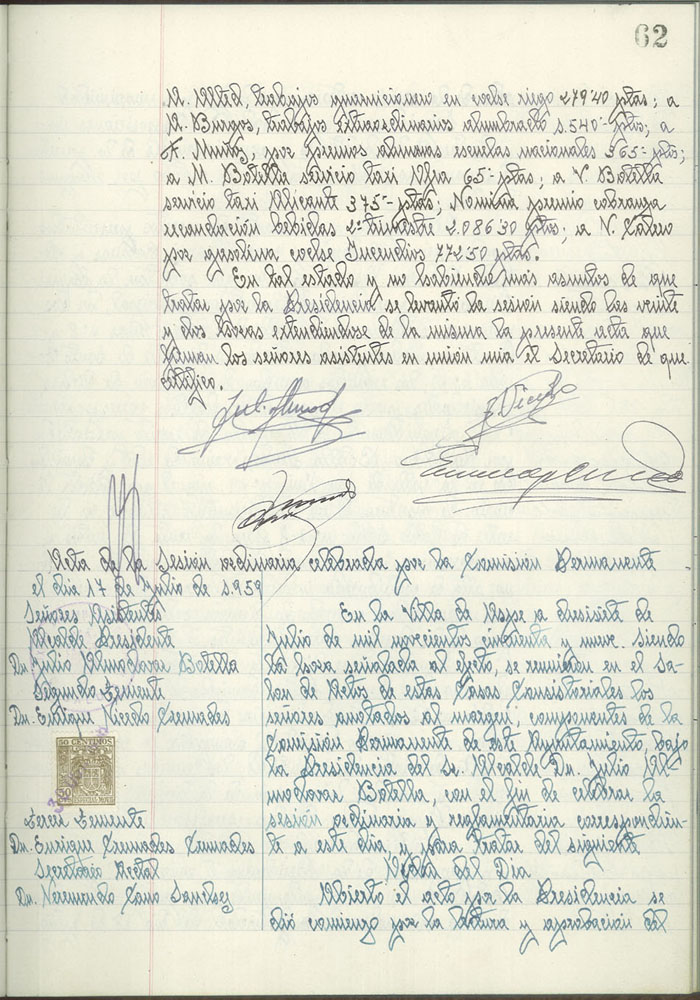 62
M. Mtd, trabajos guarnicionero en coche riego 279'40 ptas; a
M. Burgos, trabajos extraordinarios alumbrado 1.540'- ptas; a
F. Muñoz, por premios alumnas escuelas nacionales 365'- ptas;
a M. Botella servicio taxi 65'- ptas; a V. Botella
servicio taxi Alicante 375'- ptas; Nomina premio cobranza
recaudación bebidas 2º trimestre 2.086'30 ptas; a N. Calero
por gasolina coche Incendios 772'50 ptas.
En tal estado y no habiendo mas asuntos de que
tratar por la Presidencia se levantó la sesion siendo las veinte
y dos horas extendiendose de la misma la presente acta que
firman los señores asistentes en unión mia el Secretario de que
certifico.
Acta de la Sesion ordinaria celebrada por la Comisión Permanente
el dia 17 de Julio de 1.959
Señores Asistentes
Alcalde Presidente
Dn. Julio Almodovar Botella
Segundo Teniente
Dn. Enrique Vicedo Cremades
50 CENTIMOS
50
ESPECIAL MOVIL
Tercer Teniente
Dn. Enrique Cremades Cremades
Secretario Acctal
Dn. Veremundo Cano Sanchez
En la Villa de Aspe a diesisete de
Julio de mil novecientos cincuenta y nueve. Siendo
la hora señalada al efecto, se reunieron en el Sa-
lon de Actos de estas Casas Consistoriales los
señores anotados al margen, componentes de la
Comisión Permanente de este Ayuntamiento, bajo
la Presidencia del Sr. Alcalde Dn. Julio Al-
modovar Botella, con el fin de celebrar la
sesión ordinaria y reglamentaria correspondien-
te a este dia, y para tratar del siguiente
Orden del Dia
Abierto el acto por la Presidencia se
dió comienzo por la lectura y aprobacion del